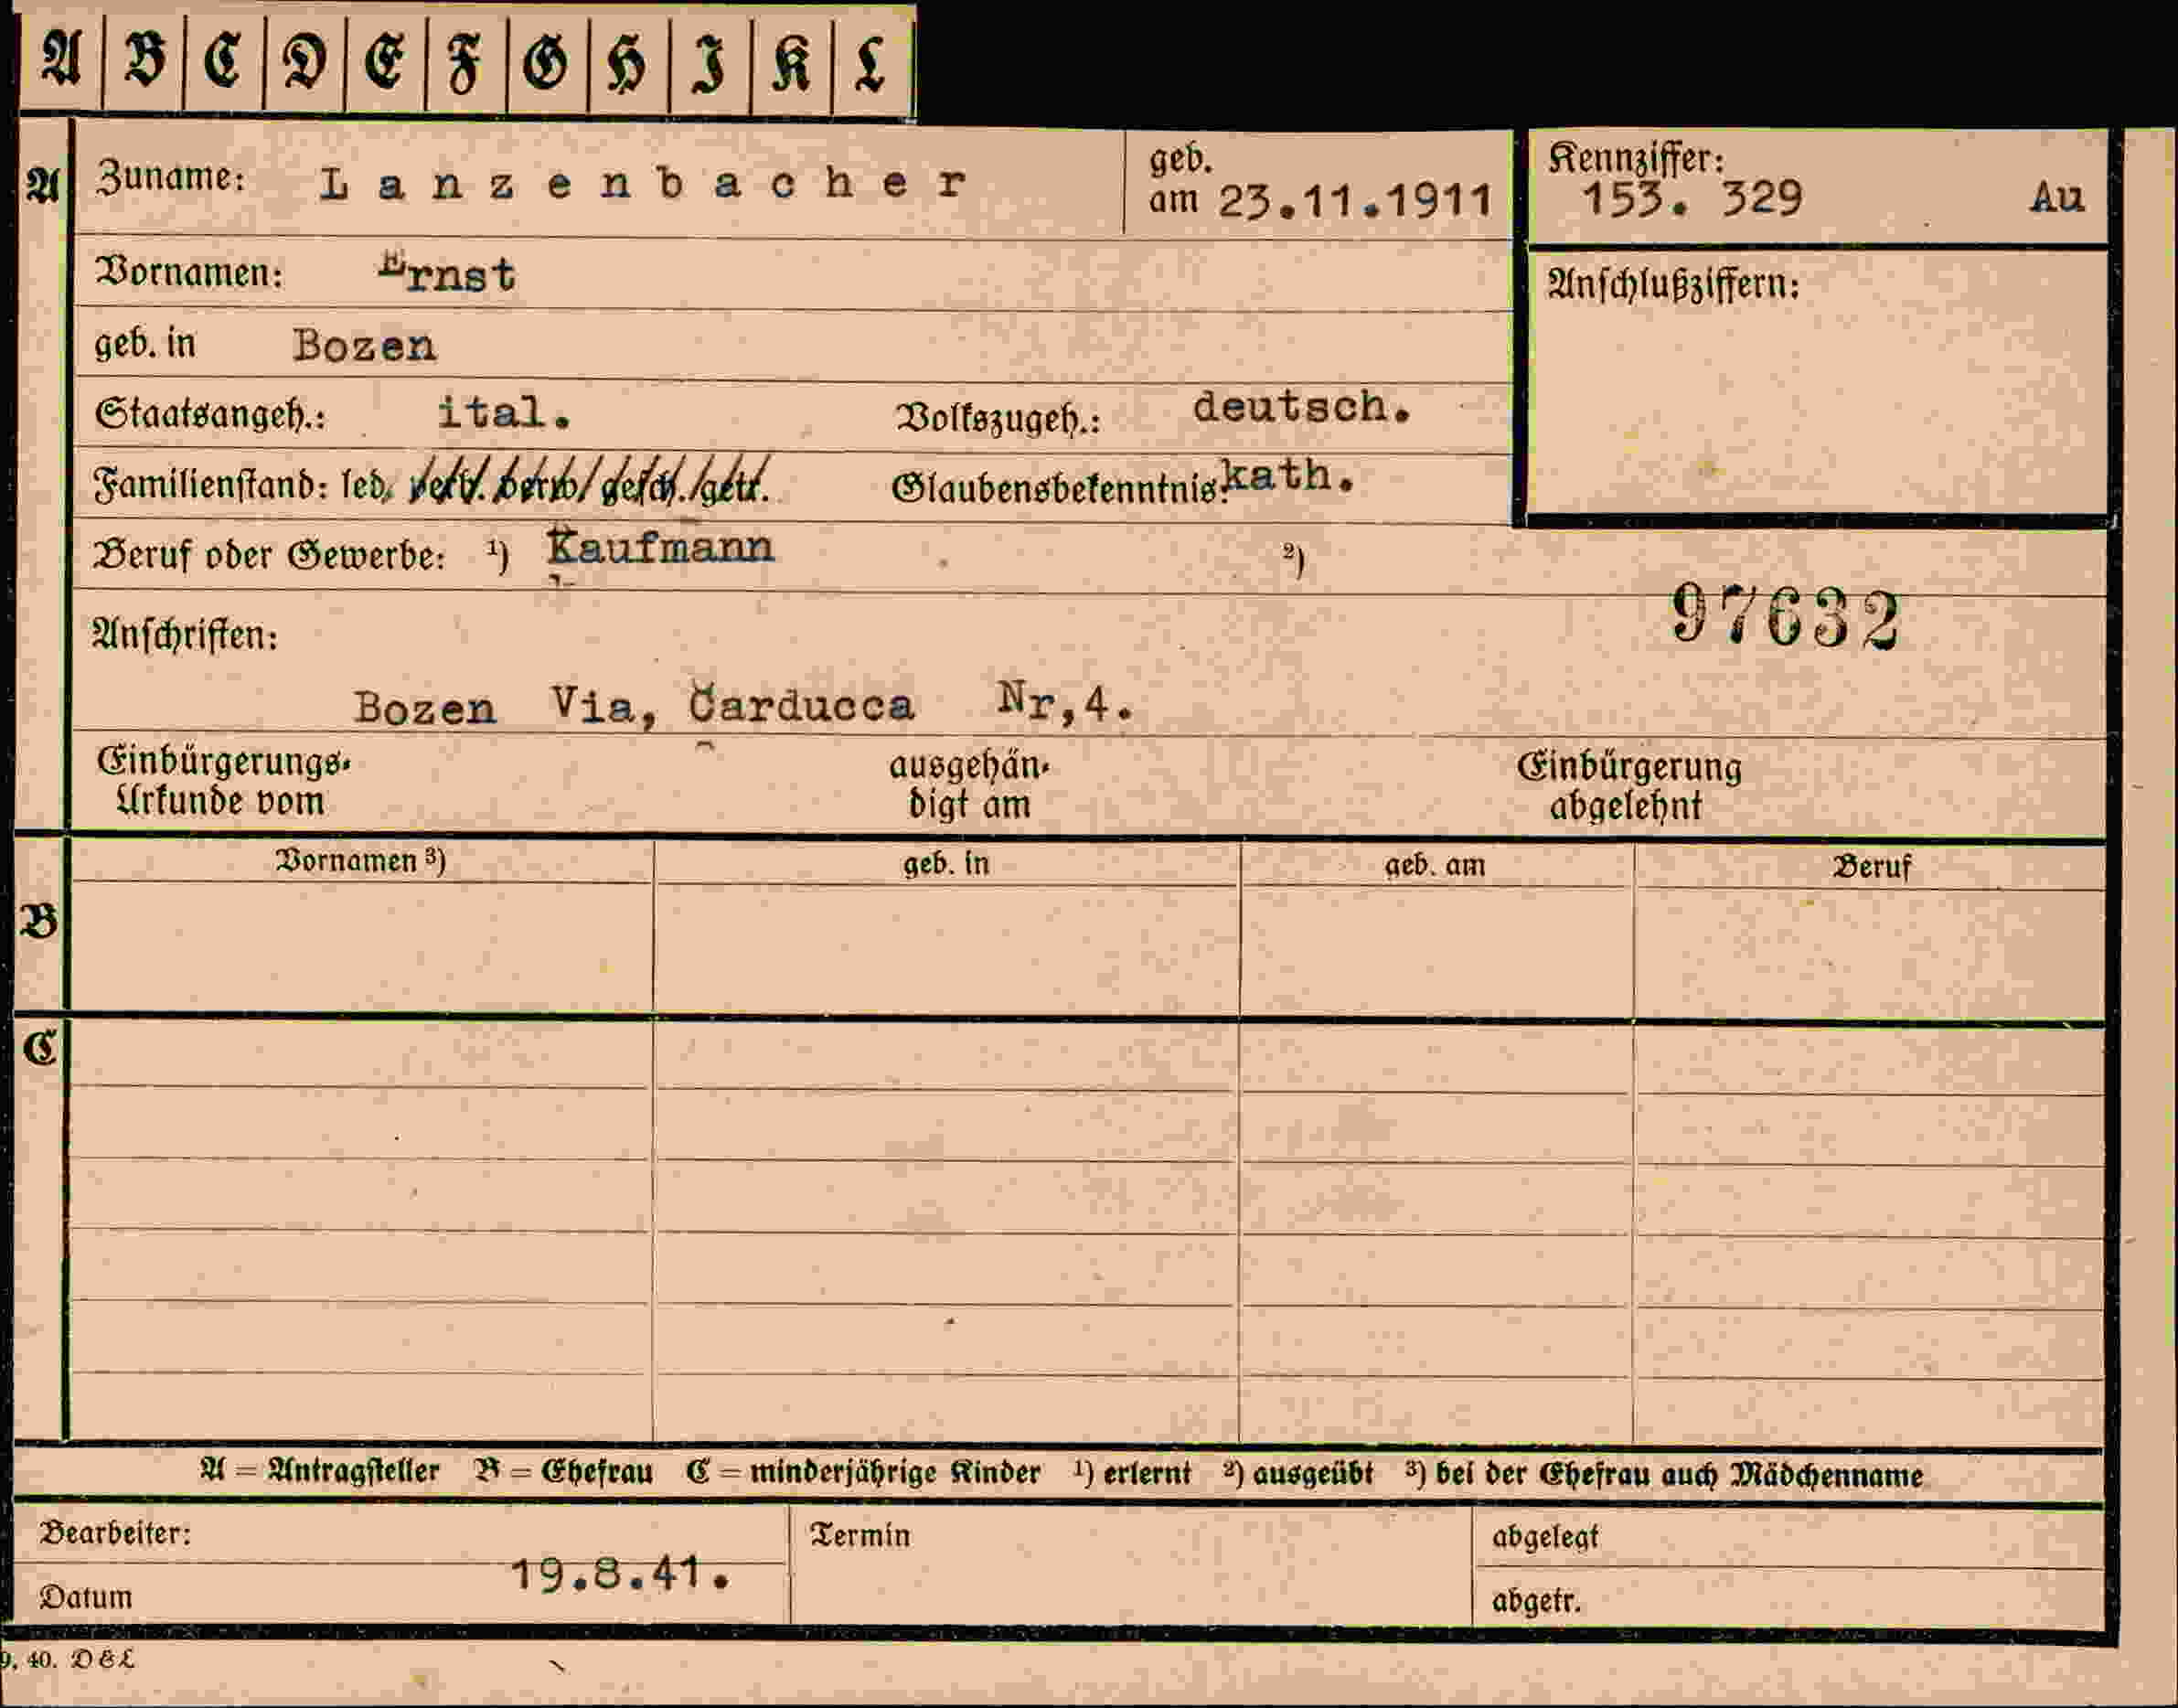 A B C D E F G H I K L
A Zuname: Lanzenbacher geb. am 23.11.1911 Kennziffer: 153. 329 Au
Vornamen: Ernst
Anschlußziffern:
geb. in Bozen
Staatsangeh.: ital. Volkszugeh.: deutsch.
Familienstand: led. verh. verw. gesch. getr. Glaubensbekenntnis: kath.
Beruf oder Gewerbe: 1) Kaufmann 2)
97632
Anschriften:
Bozen Via, Carducca Nr,4.
Einbürgerungs- ausgehän- Einbürgerung
Urkunde vom digt am abgelehnt
Vornamen 3) geb. in geb. am Beruf
B
C
A = Antragsteller B = Ehefrau C = minderjährige Kinder 1) erlernt 2) ausgeübt 3) bei der Ehefrau auch Mädchenname
Bearbeiter: Termin abgelegt
19.8.41.
Datum abgetr.
9. 40. D&L